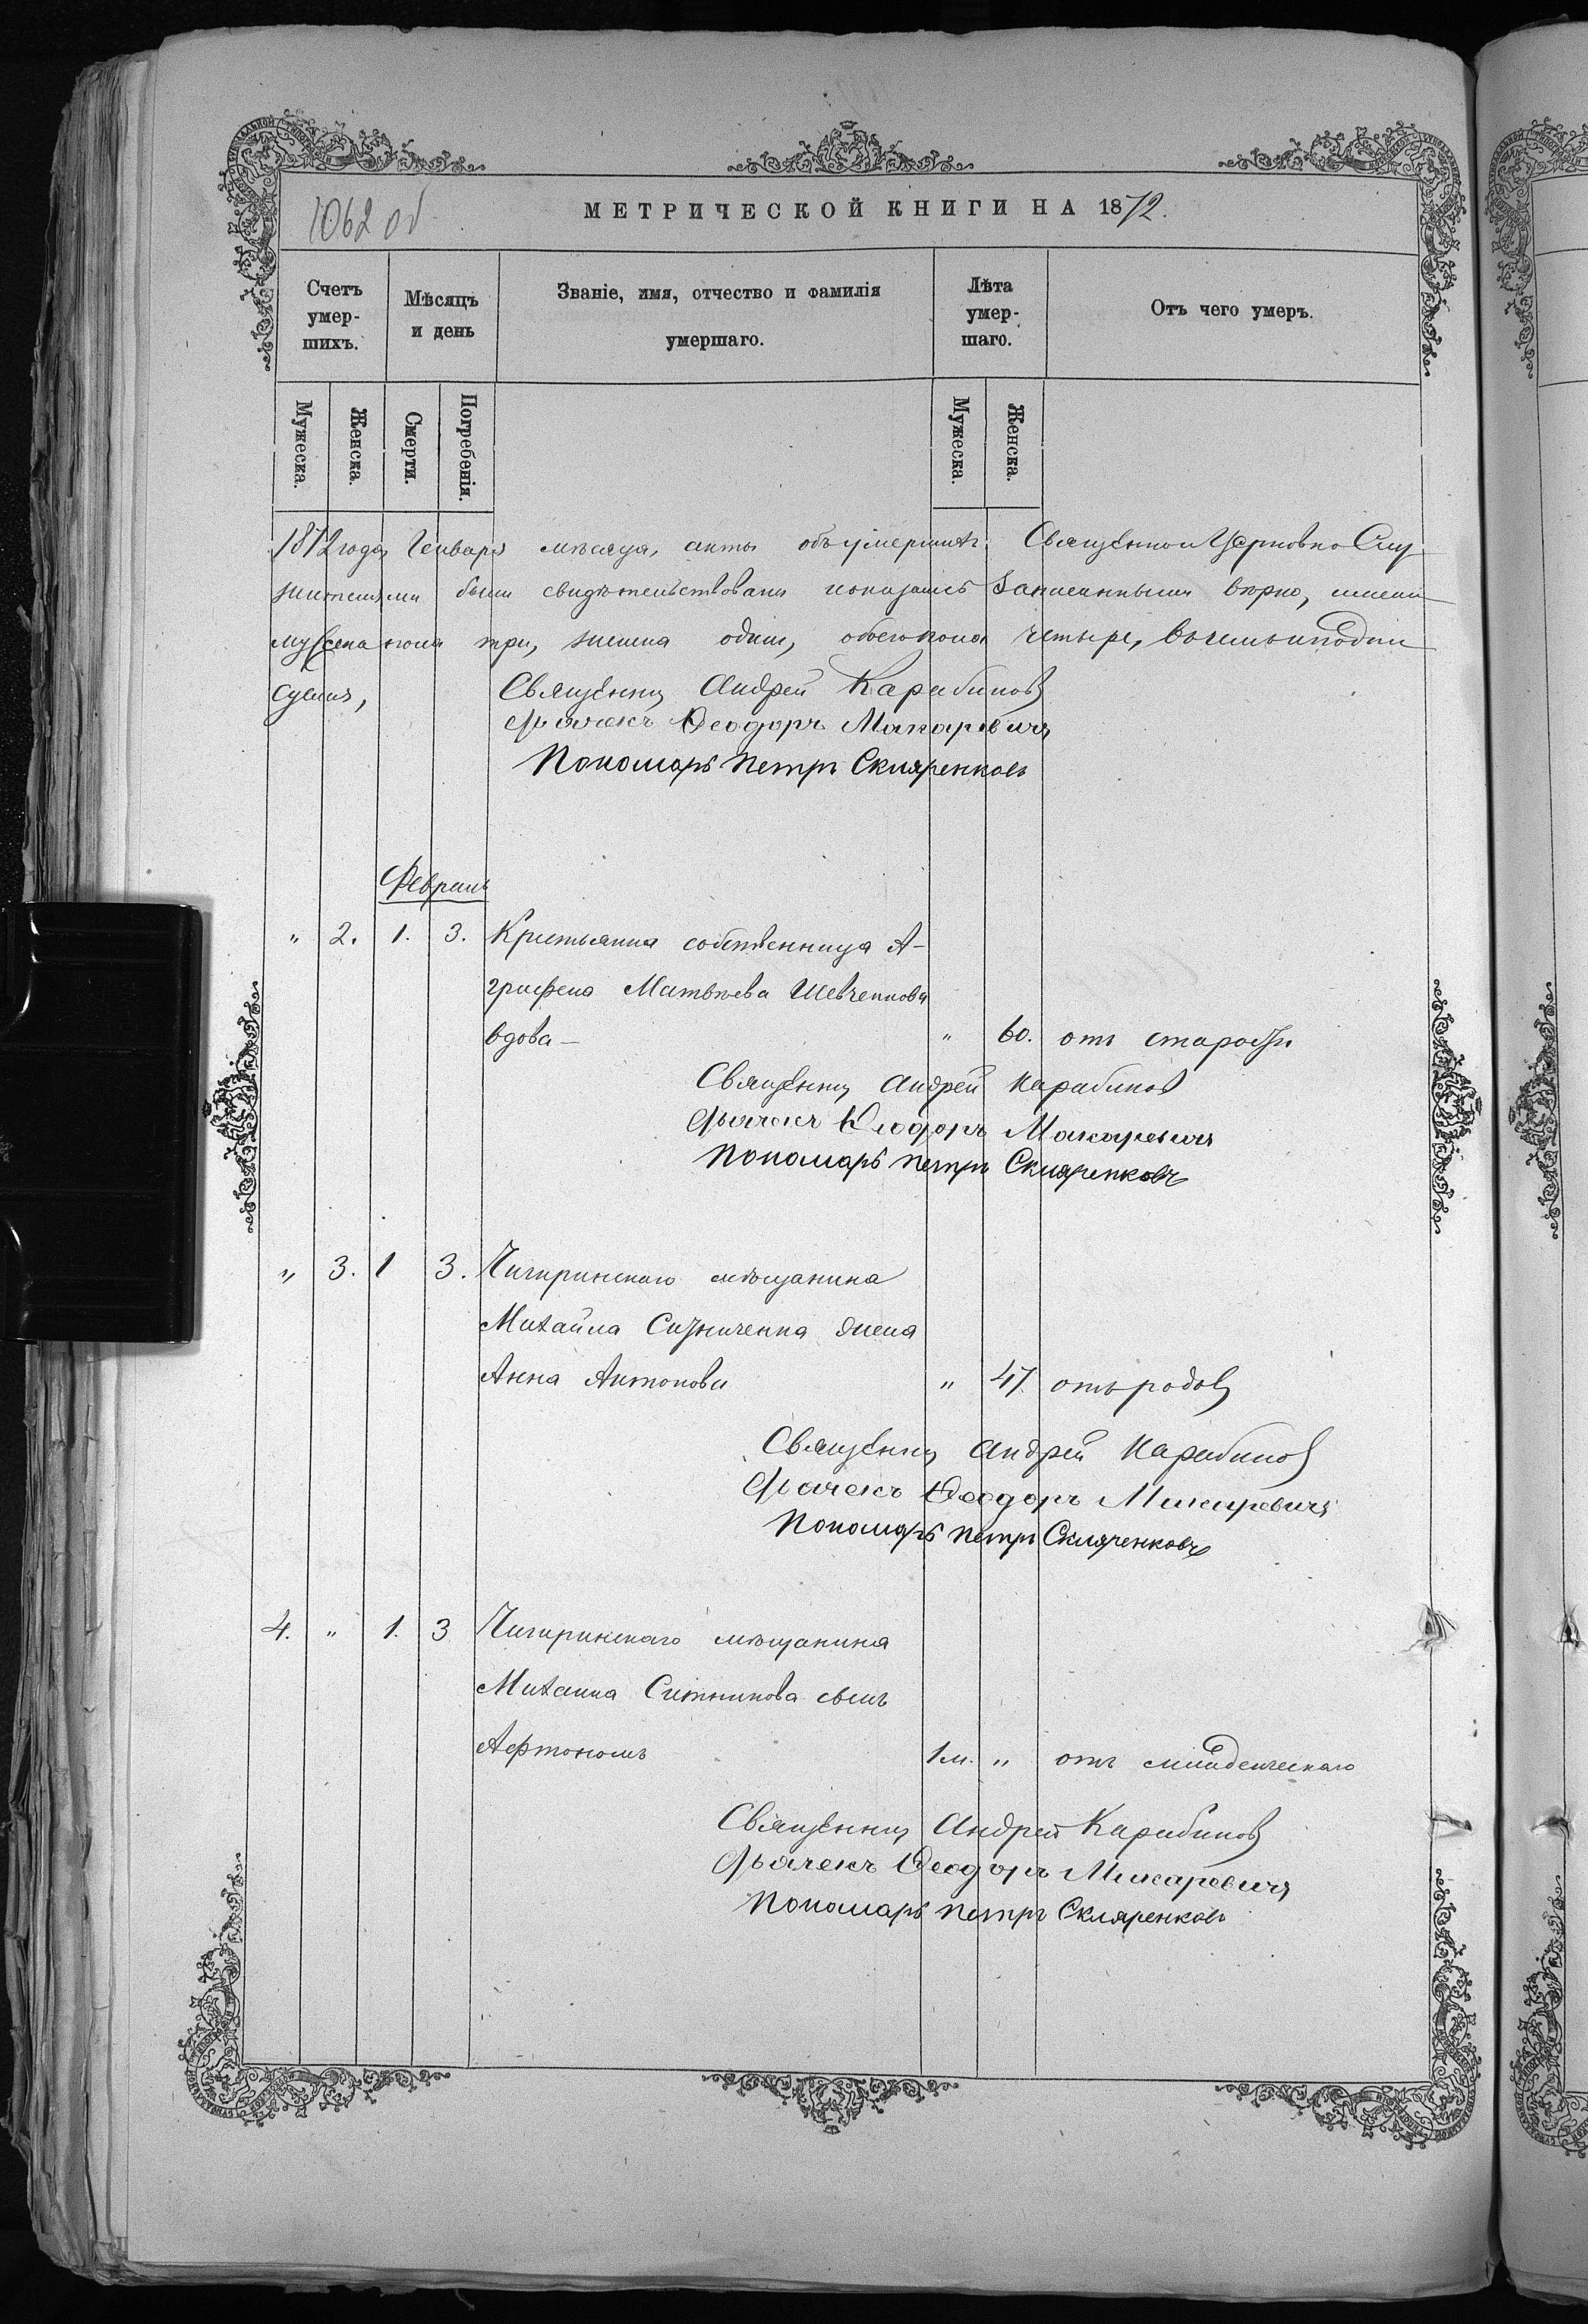 1062 об
МЕТРИЧЕСКОЙ КНИГИ НА 1872.
Счетъ умер- шихъ.
Мѣсяцъ и день
Званіе, имя, отчество и фамилія умершаго.
Лѣта умер- шаго.
Отъ чего умеръ.
Мужеска.
Женска.
Смерти.
Погребенія.
Мужеска.
Женска.
1872 года Генваря мѣсяца, акты объ умершихъ Священно и Церковно Слу-
жителями были свидѣтельствованы и оказались записанными вѣрно,
мужеска пола три, женска один, обоего пола четыре, в чем и подпи
суемся,
Священникъ Андрей Карабиновъ
Дьячекъ Ѳеодоръ Макаревичъ
Пономарь Петръ Скляренковъ
Февраль
" 2. 1. 3. Крестьянка собственница А-
грифена Матвѣева Шевченкова
вдова — " 60. отъ старости
Священникъ Андрей Карабиновъ
Дьячекъ Ѳеодоръ Макаревичъ
Пономарь Петръ Скляренковъ
" 3. 1 3. Чигиринскаго мѣщанина
Михаила жена
Анна Антонова " 47. отъ родовъ
Священникъ Андрей Карабиновъ
Дьячекъ Ѳеодоръ Макаревичъ
Пономарь Петръ Скляренковъ
4. " 1. 3 Чигиринскаго мѣщанина
Михаила Ситникова сынъ
Афтономъ 1 м. " отъ младенческаго
Священникъ Андрей Карабиновъ
Дьячекъ Ѳеодоръ Макаревичъ
Пономарь Петръ Скляренковъ